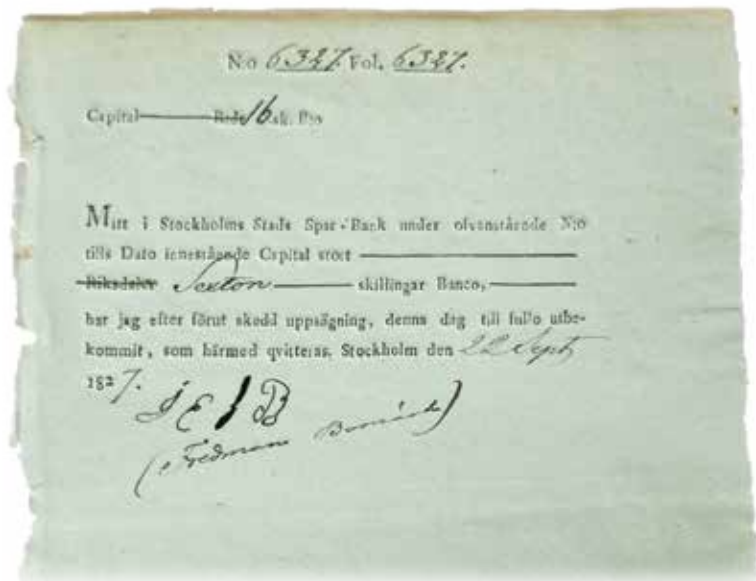 N:o 6327. Fol. 6327.
Capital Rsdr 16 sk. Bco
Mitt i Stockholms Stads Spar-Bank under ofvanstående N:o
tills Dato innestående Capital stort
Riksdaler Sexton skillingar Banco,
har jag efter förut skedd uppsägning, denna dag till fullo utbe-
kommit, som härmed qvitteras. Stockholm den 22 Sept
1827.